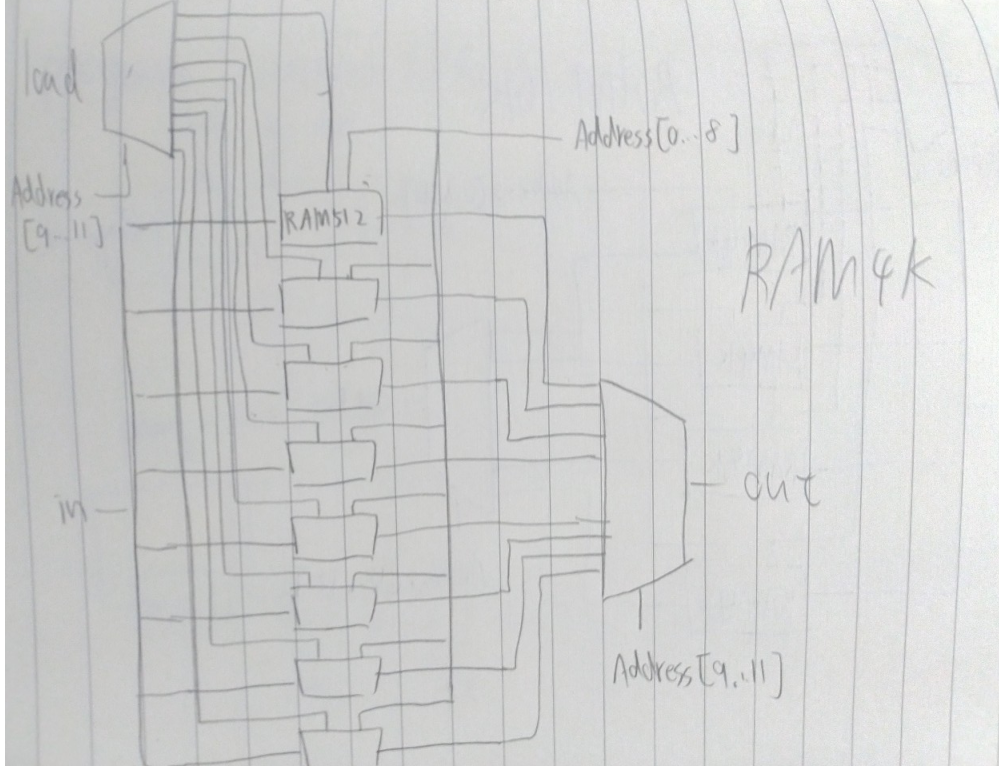 load
Address[0...8]
Address
[9..11]
RAM512
RAM4K
in
out
Address[9..11]